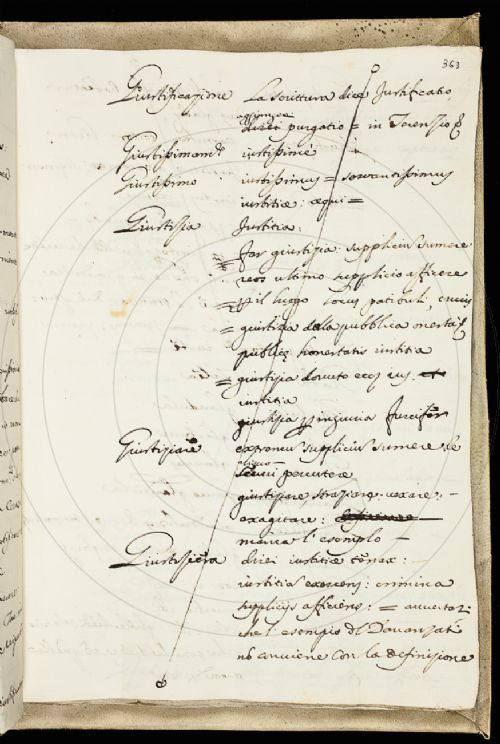 363
Giustificazione La scrittura dice Justificatio
direi purgatio = in Terenzio
Giustissimam.te iustissimè
Giustissimo iustissimus = servantissimus
iustitiæ: æqui =
Giustizia Justitia:
far giustizia supplicium sumere
reos ultimo supplicio afficere
= il luogo locus patibuli, crucis
= giustizia della pubblica onestà
publicę honestatis iustitia
= giustizia
iustitia
giustizia ingiuria
Giustiziare supplicium sumere de
aliquo
securi percutere
giustiziare, straziare: vexare: -
exagitare:
manca l'esempio
Giustiziera direi iustitiæ tenax: -
iustitiam exercens: crimina
supplicijs afficiens: = avvertat:
che l'esempio del Davanzati
no conviene con la definizione